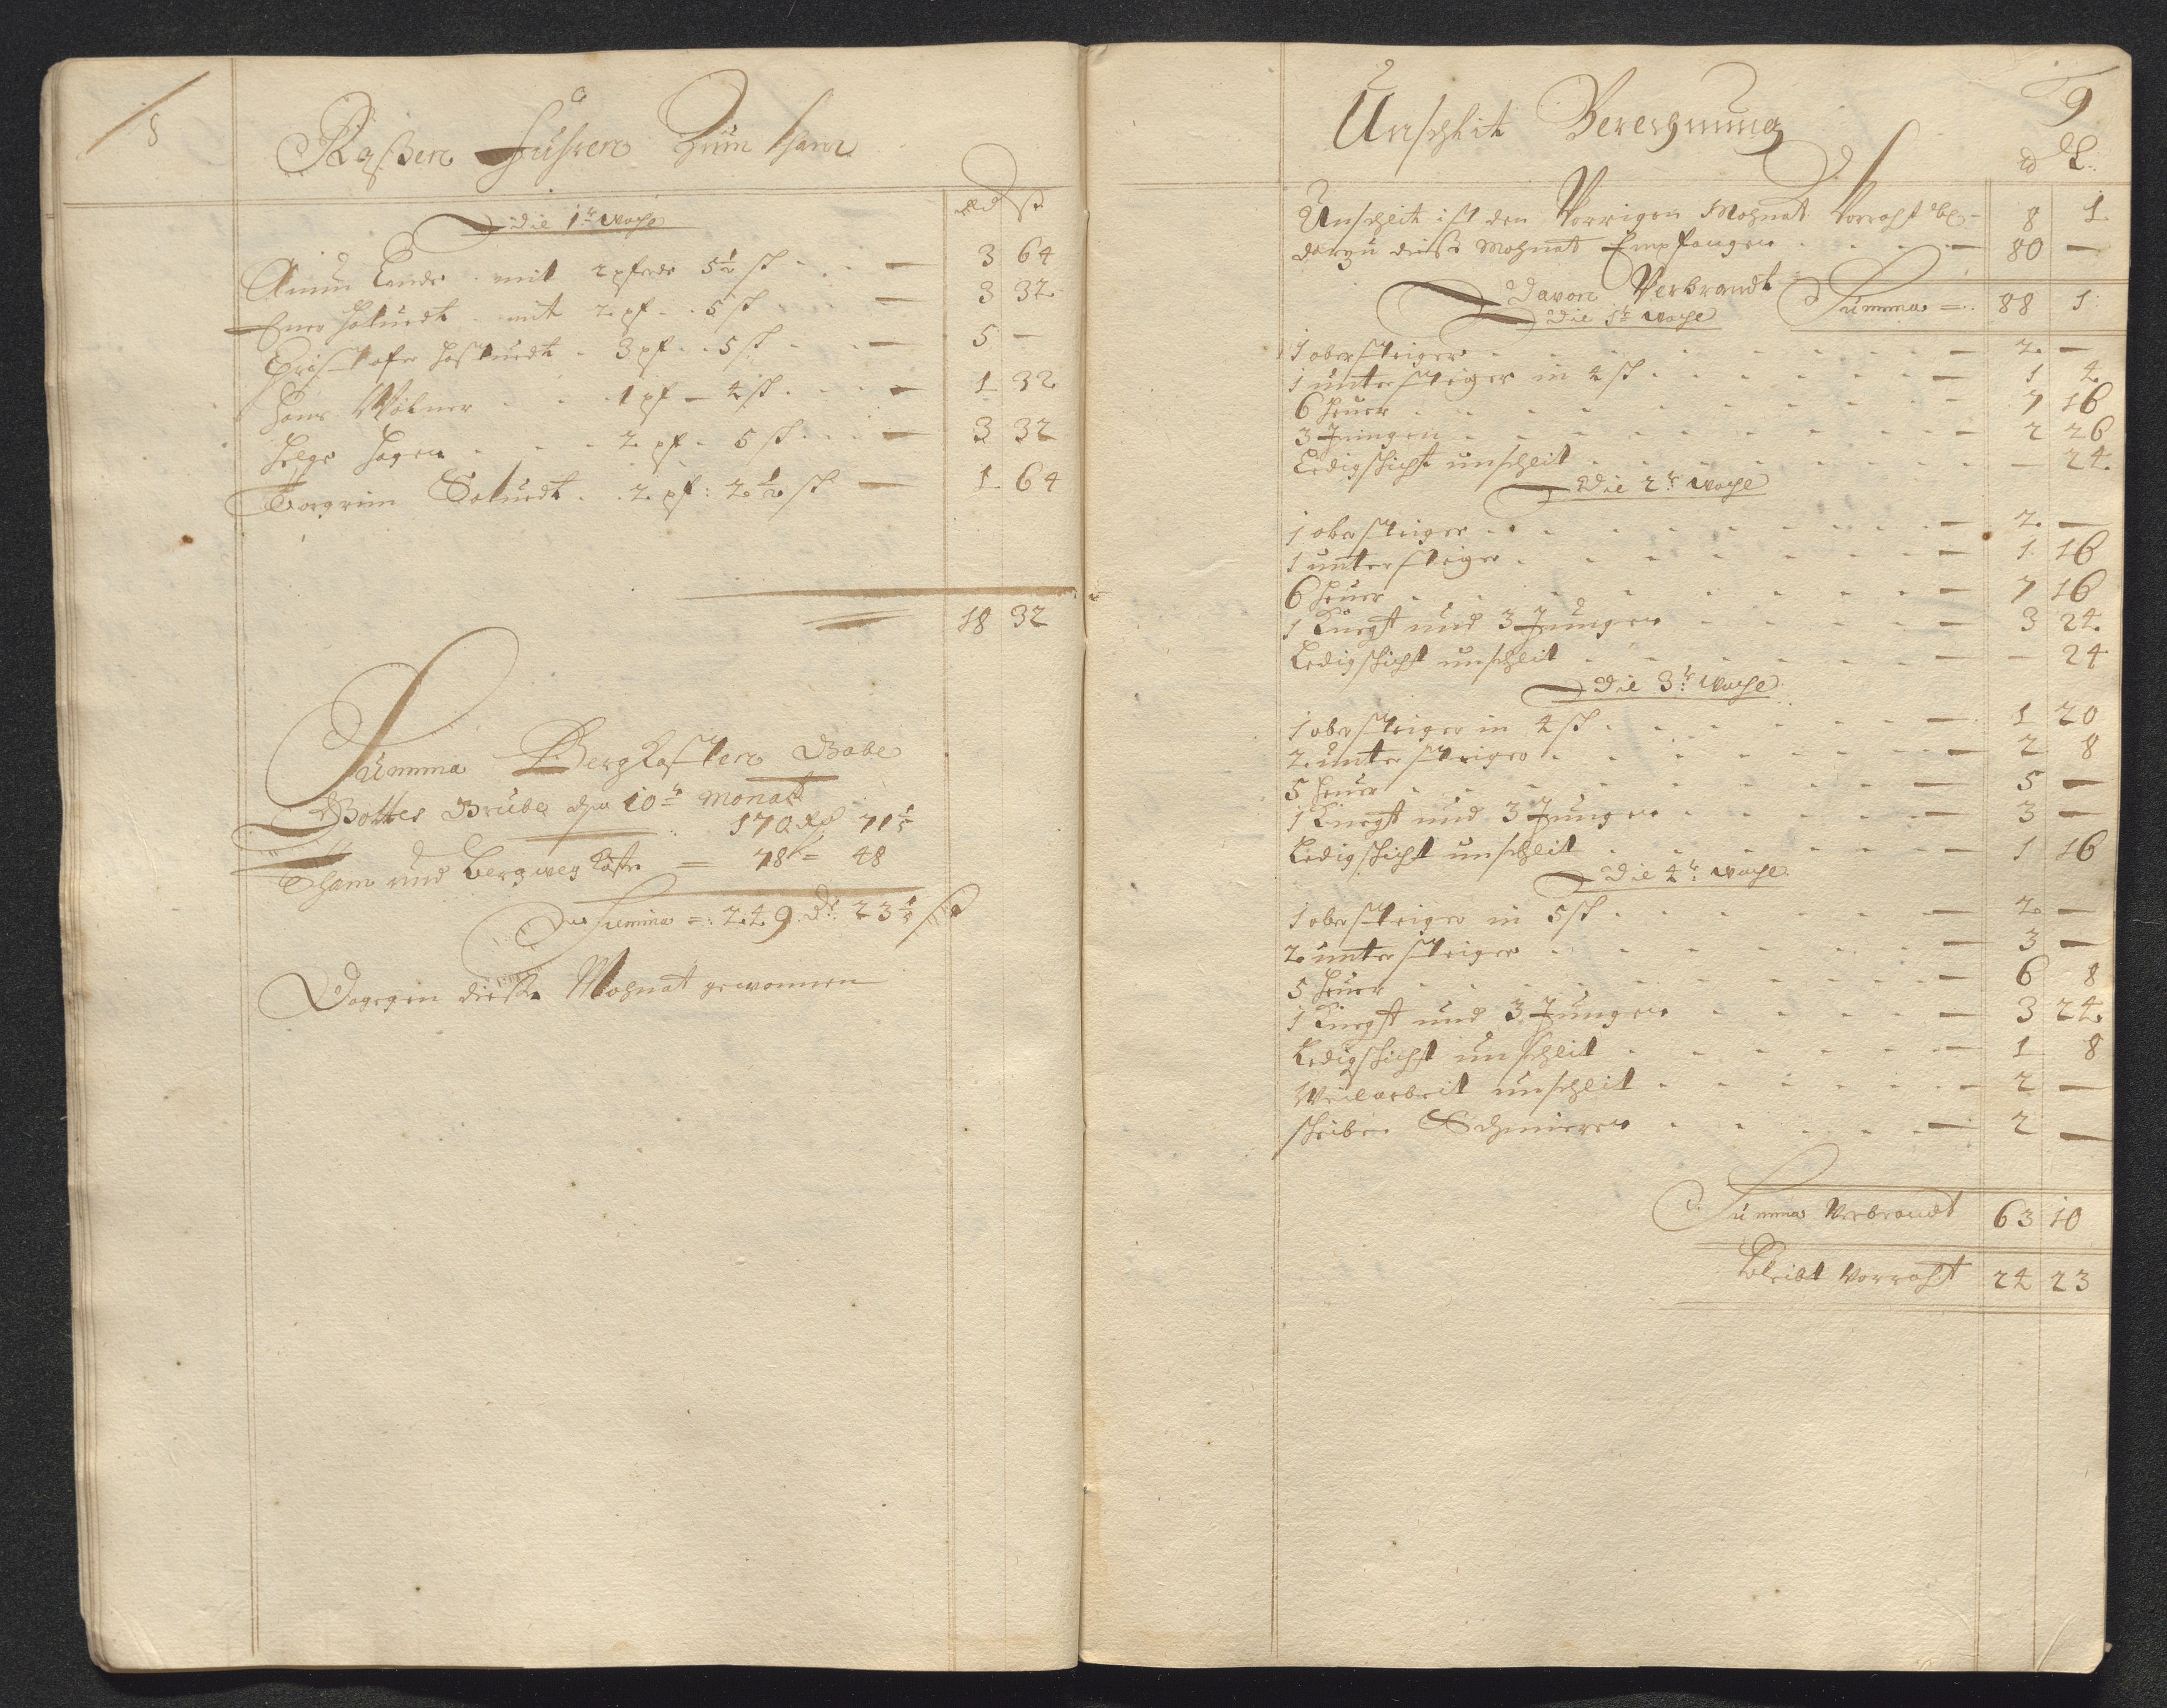 8
Raßen fuhren Zum Ham
Rd ß
Die 1te woche
Amun Lande mit 2 pferde 5½ st - 3 64
Ener Holuedt mit 2 pf - 5 st - 3 32
Christofer Holtuedt - 3 pf - 5 st - 5 -
Hans Wölner - 1 pf - 4 st - 1 32
Helge Hagen - 2 pf - 5 st - 3 32
Torgrim Soluedt - 2 pf: 2½ st - 1 64
18 32
Summa Bergkosten Gabe
Gottes Grube den 10te Monat
170 Rd 71⅕
Tham und bergweg köste = 78 = 48
Summa =: 249 Dr: 23⅕ ß
Dagegen diesen Mohnat gewonnen
9
Unschlit Berechnung
Unschleit ist den Vorrigen Mohnat Vorraht - 8 1
darzu diese Mohnat Empfangen - 80 -
Davon Verbrandt Summa = 88 1
Die 1te woche
1 obersteiger - 2 -
1 untersteiger in 4 st - 1 4
6 heuer - 7 16
3 Jungen - 2 26
Ledigschicht unschleit - 24
Die 2te woche
1 obersteiger - 2 -
1 untersteiger - 1 16
6 heuer - 7 16
1 Knecht und 3 Jungen - 3 24
Ledigschicht unschleit - 24
Die 3te woche
1 obersteiger in 4 st - 1 20
2 untersteiger - 2 8
5 heuer - 5 -
1 Knecht und 3 Jungen - 3 -
Ledigschicht unschleit - 1 16
Die 4te woche
1 obersteiger in 5 st - 2 -
2 untersteiger - 3 -
5 heuer - 6 8
1 Knecht und 3 Jungen - 3 24
Ledigschicht unschleit - 1 8
Weilarbeit unschleit - 2 -
scheiben Schmieren - 2 -
Summa Verbrandt 63 10
Bleibt Vorraht 24 23